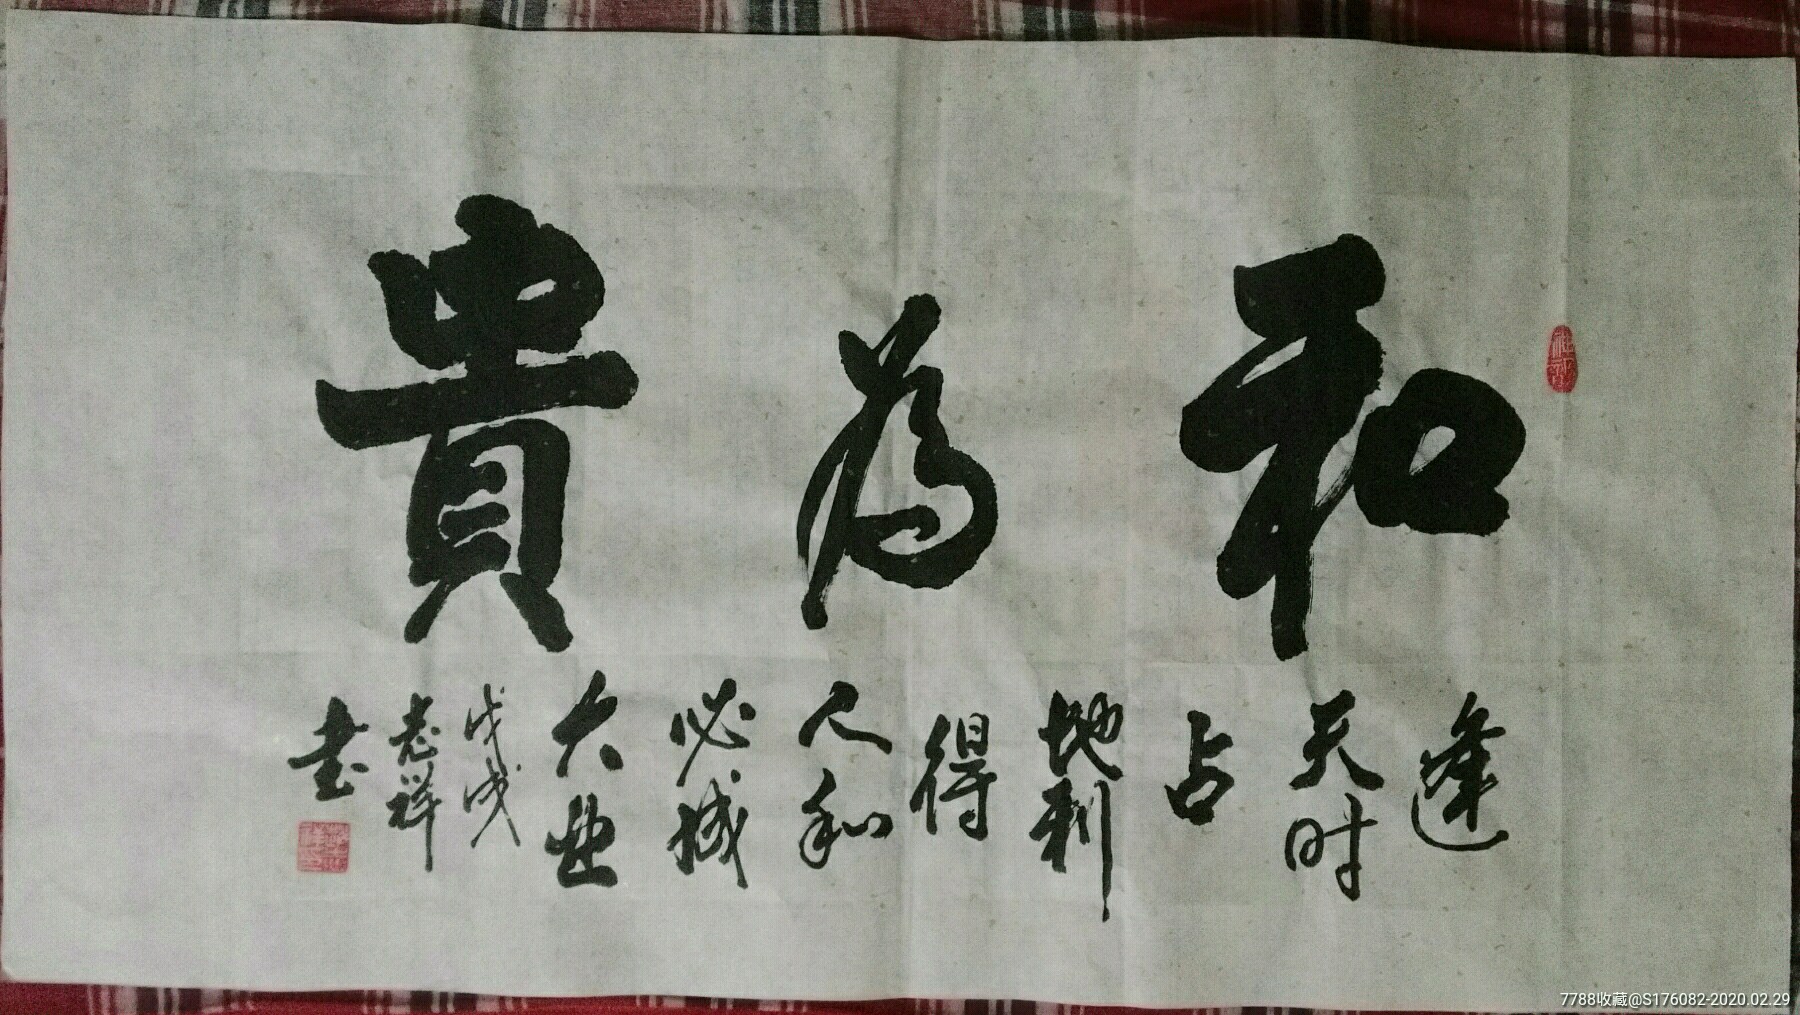 和為貴
逢
天时
占
地利
得
人和
必成
大业
戊戌
志祥
书
7788收藏@S176082-2020.02.29